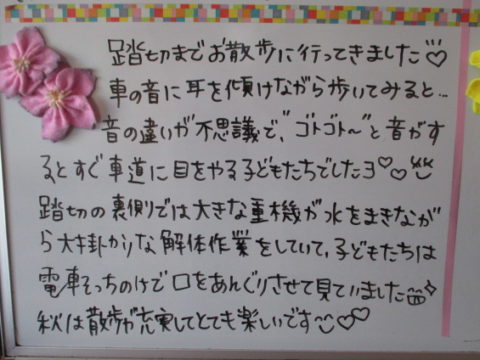 踏切までお散歩に行ってきました♡
車の音に耳を傾けながら歩いてみると…
音の違いが不思議で、"ゴトゴト〜"と音がす
るとすぐ車道に目をやる子どもたちでしたヨ♡♡
踏切の裏側では大きな重機が水をまきなが
ら大掛かりな解体作業をしていて、子どもたちは
電車そっちのけで口をあんぐりさせて見ていました
秋は散歩が充実してとても楽しいです♡♡